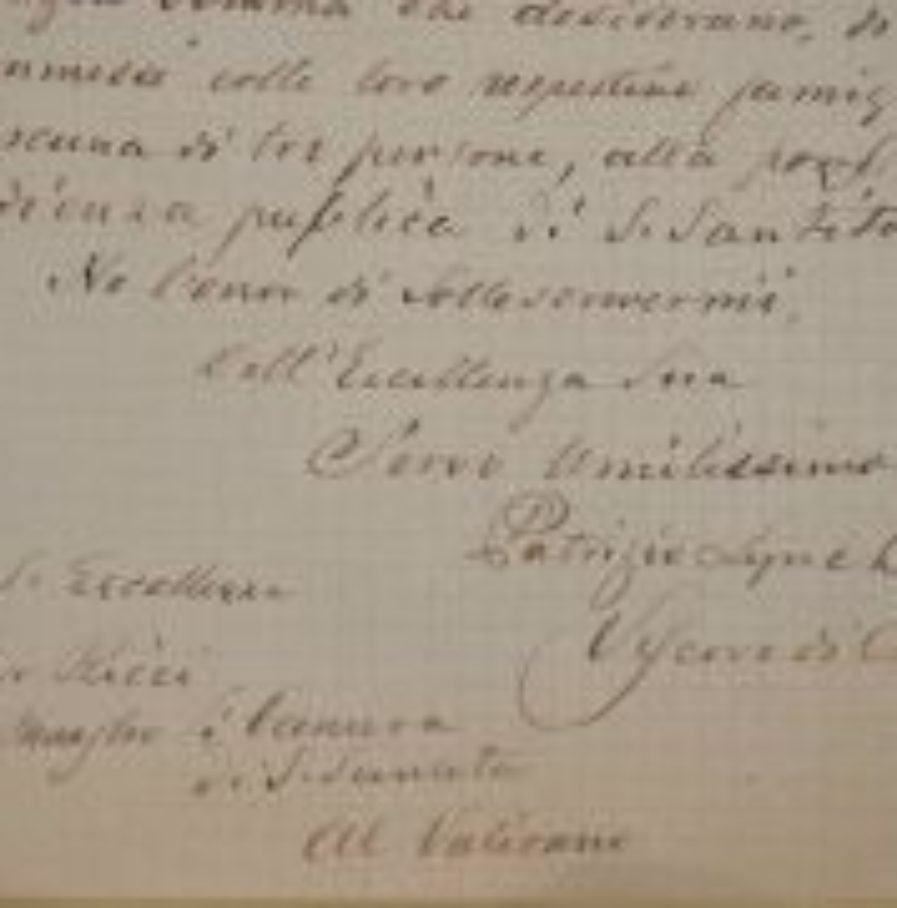 che desiderano, di
ammessi colle loro respettive famig
scuna di tre persone, alla
dienza publica di S. Santità
Ho l'onor di sottoscrivermi,
Dell'Eccellenza Sua
Servo Umilissimo
Patrizio Lynch
Vescovo di C
S. Eccellenza
Ricci
di Camera
di S. Santità
Al Vaticano